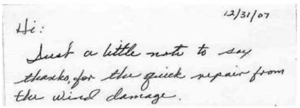 12/31/07
Hi:
Just a little note to say
thanks, for the quick repair from
the wind damage.